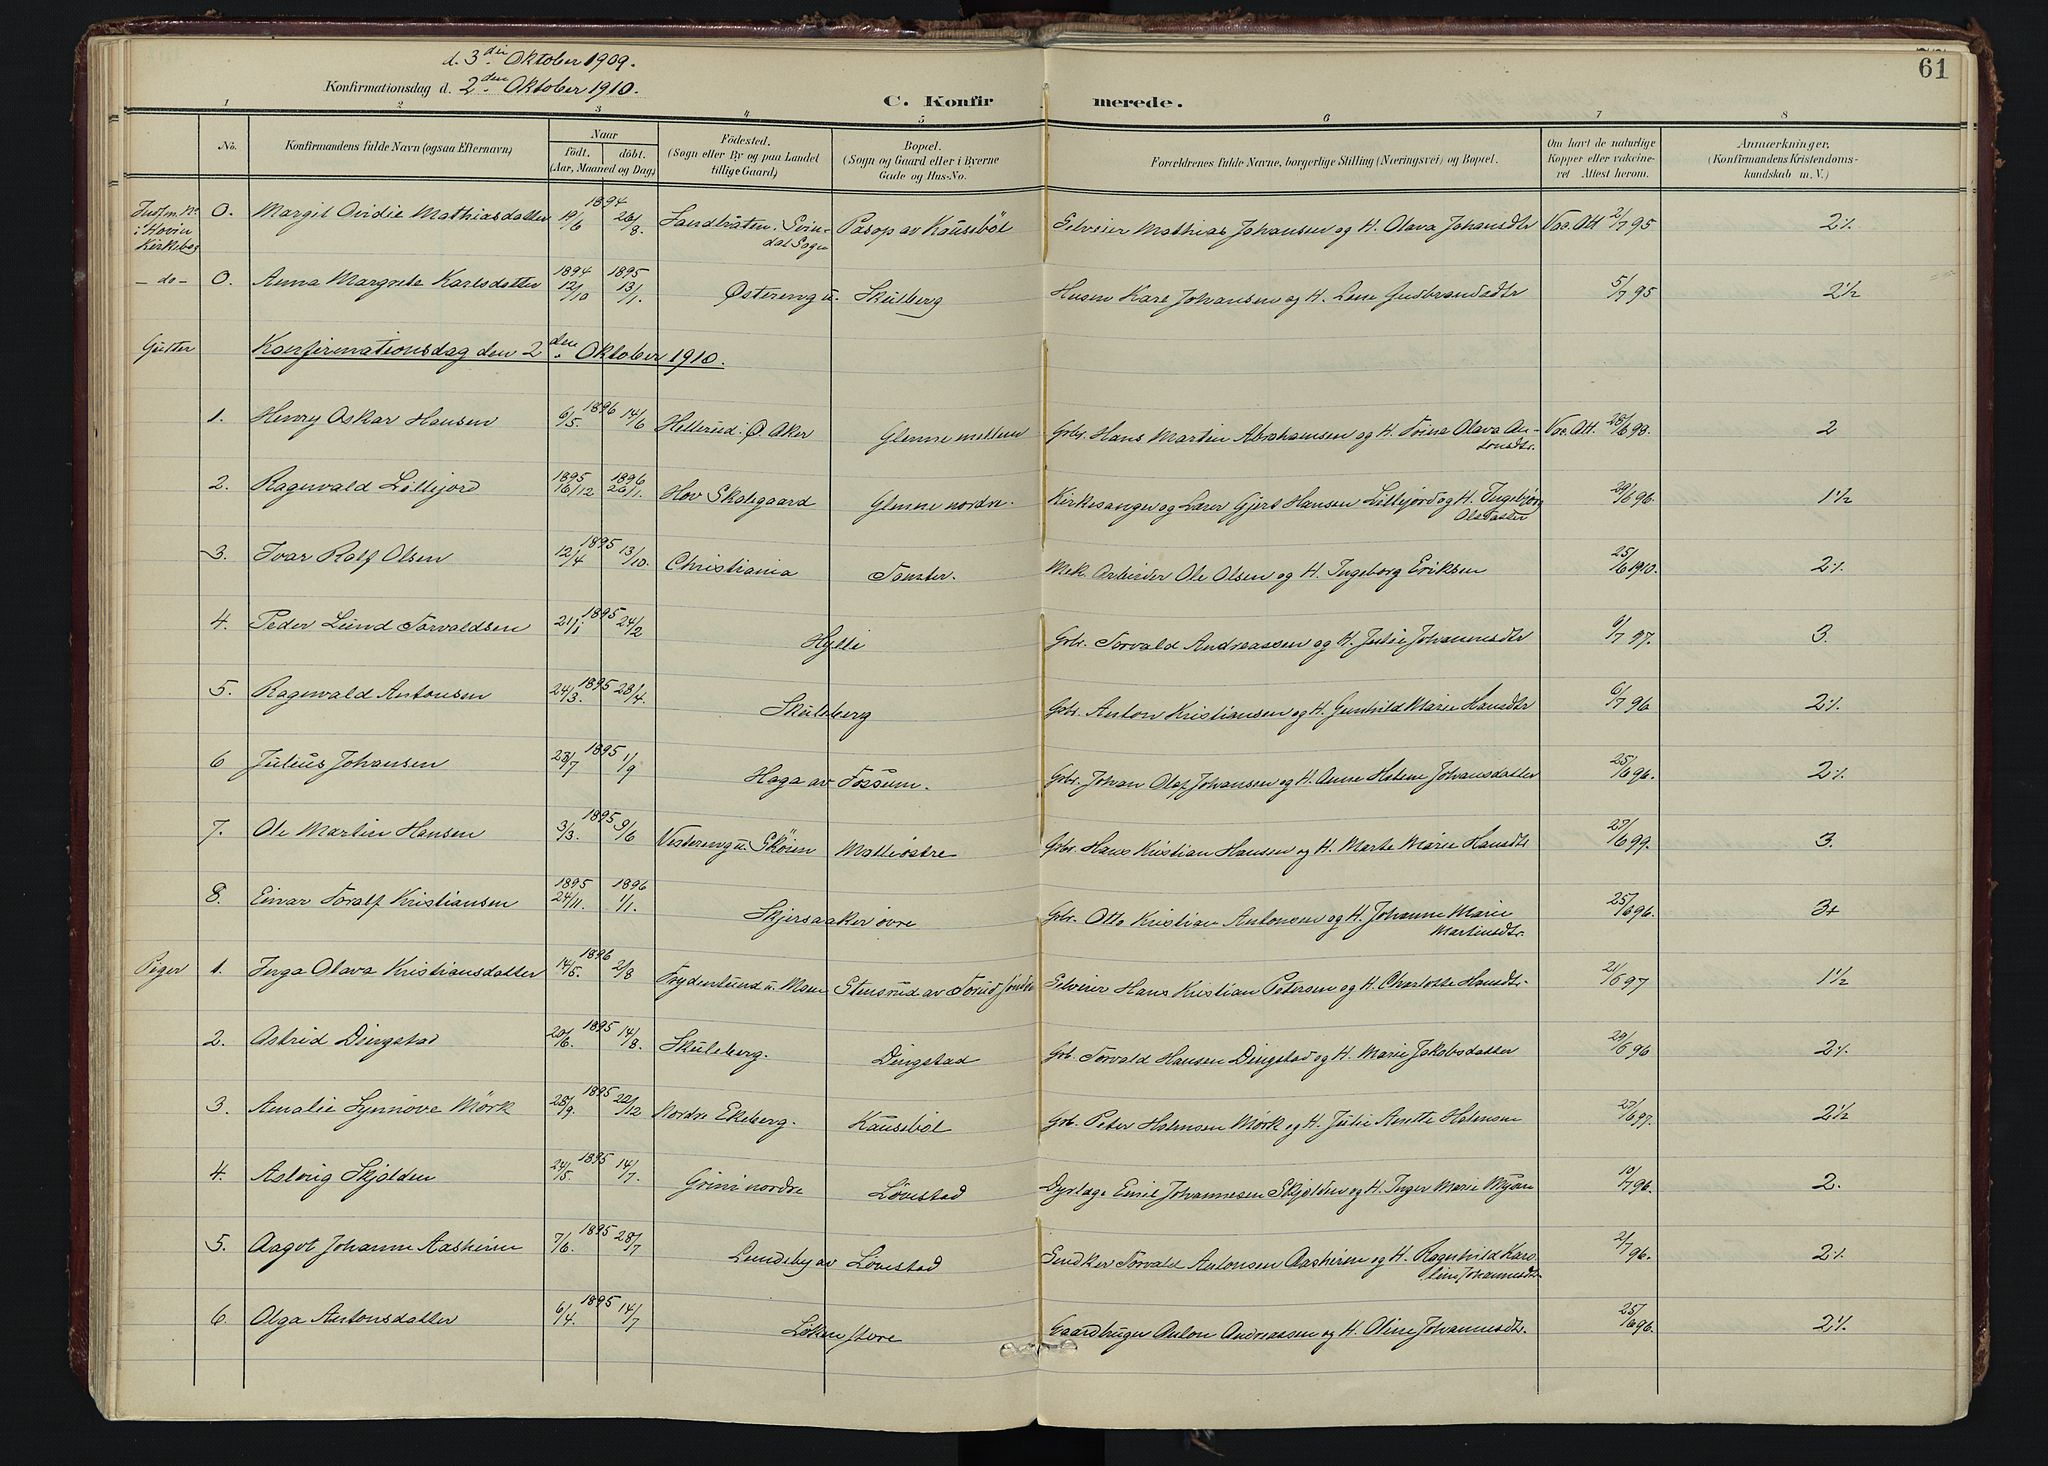 61
d. 3die Oktober 1909.
Konfirmationsdag d. 2den Oktober 1910.
C. Konfirmerede.
1 2 3 4 5 6 7 8
No.
Konfirmandens fulde Navn (ogsaa Efternavn)
Naar
födt. döbt.
(Aar, Maaned og Dag)
Födested.
(Sogn eller By og paa Landet
tillige Gaard)
Bopæl.
(Sogn og Gaard eller i Byerne
Gade og Hus-No.
Forældrenes fulde Navne, borgerlige Stilling (Næringsvei) og Bopæl.
Om havt de naturlige
Kopper eller vakcine-
ret Attest herom.
Anmærkninger,
(Konfirmandens Kristendoms-
kundskab m. V.)
i Hovin Kirkebog 0. Margit Ovidie Mathiasdatter 1894 19/6 26/8. Sandbraaten i Svindal Sogn Pasop av Kausebøl Selveier Mathias Johansen og H. Olava Johansdtr Vac. Att 2/7 95 2%
- do - 0. Anna Margrete Karlsdatter 1894 12/10 1895 13/1. Østereng u. Skuleberg Husm Karl Johansen og H. Lene Gudbrandsdtr 5/7 95 2½
Gutter Konfirmationsdag den 2den Oktober 1910.
1. Henry Oskar Hansen 6/5. 1896 14/6 Hellerud i Ø. Aker Glenne mellem Gbr. Hans Martin Abrahamsen og H. Olava Antonsdtr. Vac. Att. 28/6 99. 2
2. Ragnvald Lillejord 1895 16/12 1896 26/1. Hov Skolegaard Glenne nordre. Kirkesanger og Lærer Gjert Hansen Lillejord og H. Ingebjørg Olsdatter 29/6 96. 1½
3. Ivar Rolf Olsen 12/4 1895 13/10. Christiania Tomter. Mek. Arbeider Ole Olsen og H. Ingeborg Eriksen 25/6 1910. 2%
4. Peder Lund Torvaldsen 21/1 1895 24/2 Hylli Gbr. Torvald Andreassen og H. Julie Johannesdtr 6/7 97. 3.
5. Ragnvald Antonsen 24/3. 1895 28/4. Skuleberg Gbr. Anton Kristiansen og H. Gunhild Marie Hansdtr 6/7 96 2%
6 Julius Johansen 28/7 1895 1/9 Haga av Fossum. Gbr. Johan Olaf Johansen og H. Anne Helene Johansdatter 25/6 96. 2%
7. Ole Martin Hansen 3/3. 1895 9/6 Vestereng u. Skøien Mølli østre Gbr. Hans Kristian Hansen og H. Marte Marie Hansdtr 27/6 99. 3.
8. Einar Toralf Kristiansen 1895 24/11. 1896 1/1. Skjersaaker øvre Gbr. Otto Kristian Antonsen og H. Johanne Marie Martinsdtr. 25/6 96. 3+
Piger 1. Inga Olava Kristiansdatter 14/5. 1896 2/8 Frydenlund u. Stensrud av Torud søndre Selveier Hans Kristian Petersen og H. Charlotte Hansdtr. 21/6 97 1½
2. Astrid Dingstad 20/6. 1895 14/8. Skuleberg. Dingstad Gbr. Torvald Hansen Dingstad og H. Marie Jakobsdatter 29/6 96 2%
3. Amalie Synnøve Mörk 28/9. 1895 22/12 Nordre Ekeberg. Kausebøl Gbr. Peter Holmsen Mørk og H. Julie Anette Holmsen 27/6 97. 2½
4. Aslaug Skjolden 24/5. 1895 14/7. Grini nordre Løvestad Dyrlæge Emil Johannesen Skjolden og H. Inger Marie Mysen 10/7 96. 2.
5. Aagot Johanne Aasheim 7/6. 1895 28/7 Lundeby av Løvestad Snedker Torvald Antonsen Aasheim og H. Ragnhild Karoline Johannesdtr. 2/7 96. 2%
6. Olga Antonsdatter 6/4. 1895 14/7 Løken store Gaardbruger Anton Andreassen og H. Oline Johannesdtr. 25/6 96. 2%